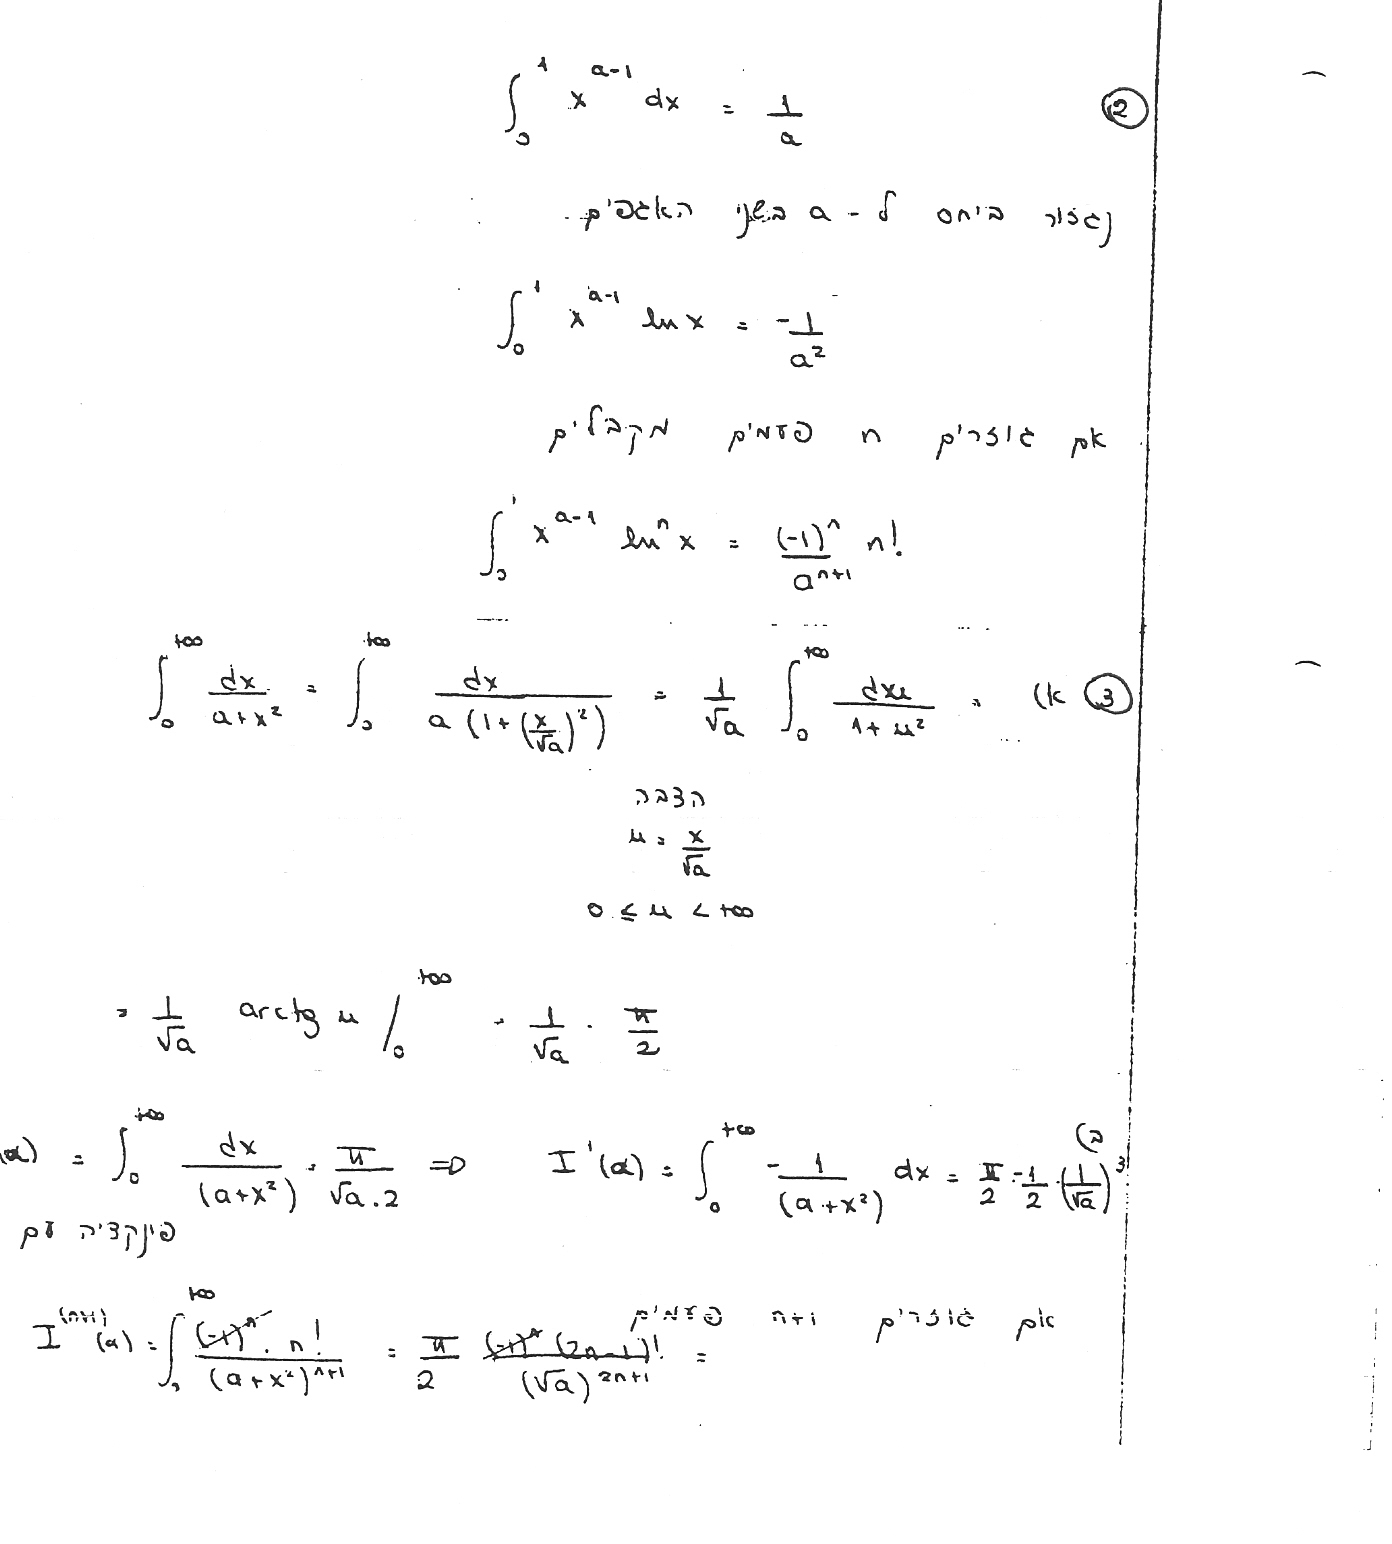 ② ∫₀¹ x^(a-1) dx = 1/a
נגזור ביחס ל - a בשני האגפים.
∫₀¹ x^(a-1) ln x = -1/a²
אם גוזרים n פעמים מקבלים
∫₀¹ x^(a-1) lnⁿ x = (-1)ⁿ/a^(n+1) n!
③ א) ∫₀^(+∞) dx/(a+x²) = ∫₀^(+∞) dx/(a(1+(x/√a)²)) = 1/√a ∫₀^(+∞) du/(1+u²) =
הצבה
u = x/√a
0 ≤ u < +∞
= 1/√a arctg u /₀^(+∞) = 1/√a · π/2
ב) (a) = ∫₀^(+∞) dx/(a+x²) = π/(√a·2) ⇒ I'(a) = ∫₀^(+∞) -1/(a+x²) dx = π/2 · -1/2 · (1/√a)³
פונקציה עם
אם גוזרים n+1 פעמים
I^(n+1)(a) = ∫₀^(+∞) (-1)ⁿ · n!/(a+x²)^(n+1) = π/2 (-1)ⁿ (2n-1)!/(√a)^(2n+1) =